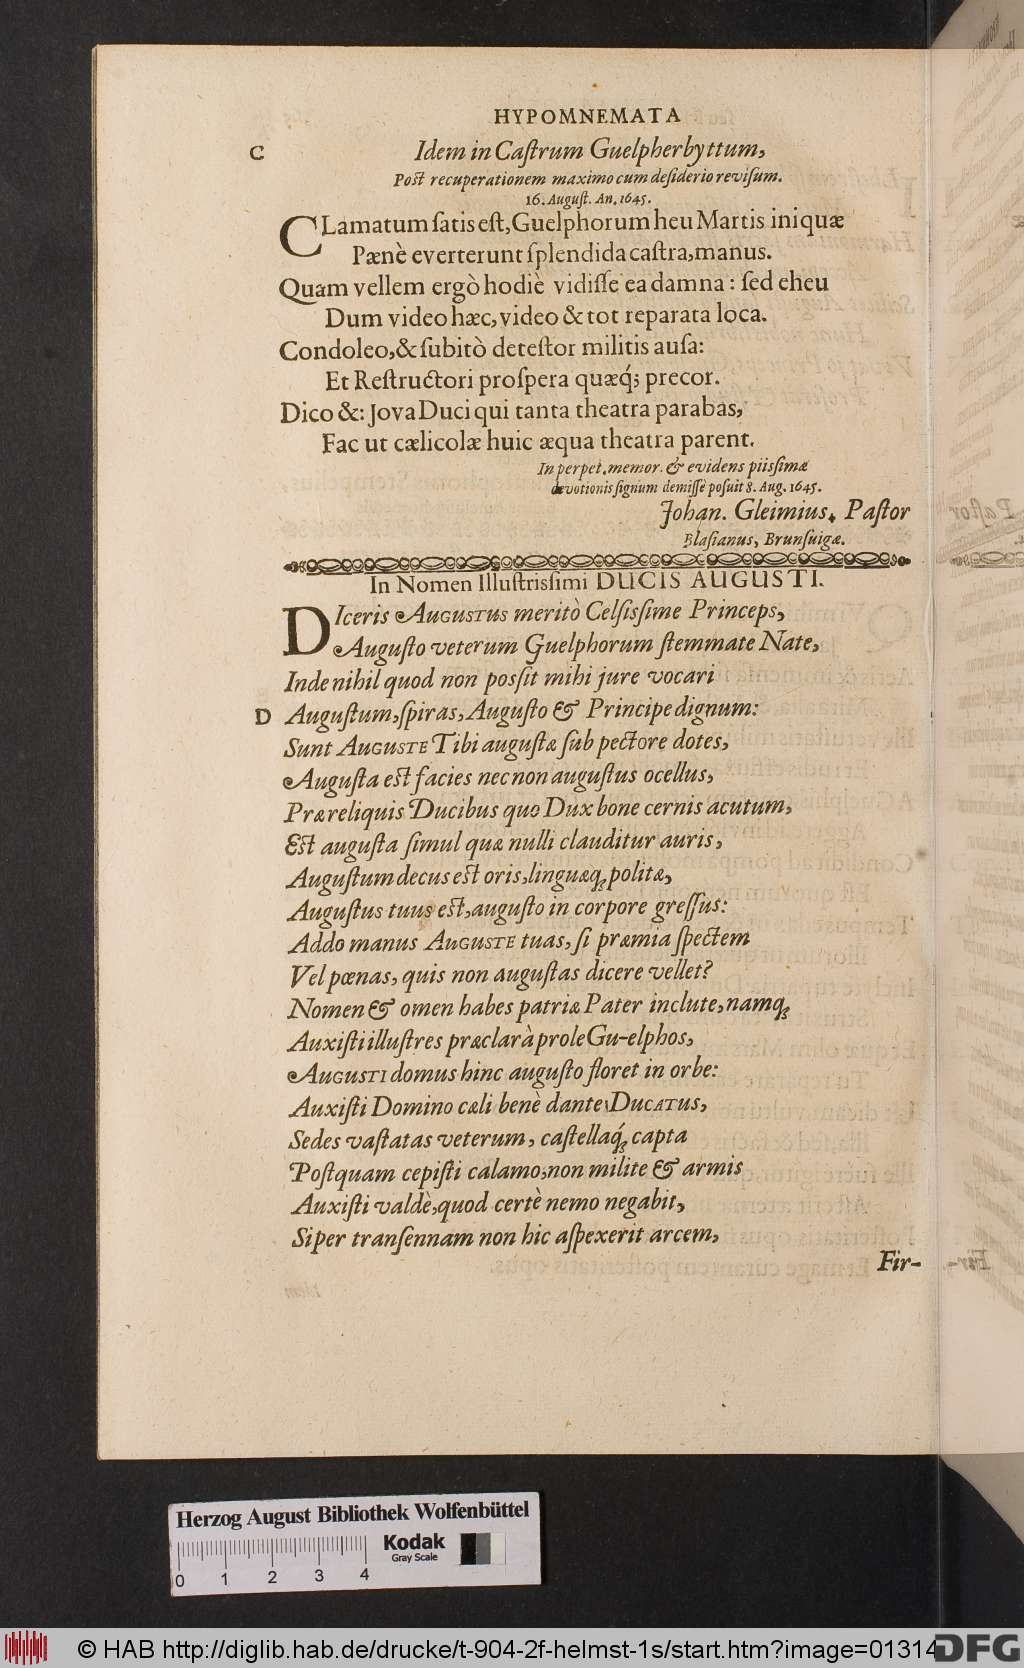 HYPOMNEMATA
C
Idem in Caſtrum Guelpherbyttum,
Poſt recuperationem maximo cum deſiderio reviſum.
16. Auguſt. An. 1645.
CLamatum ſatis eſt, Guelphorum heu Martis iniquæ
Pænè everterunt ſplendida caſtra, manus.
Quam vellem ergò hodiè vidiſſe ea damna: ſed eheu
Dum video hæc, video & tot reparata loca.
Condoleo, & ſubitò deteſtor militis auſa:
Et Reſtructori proſpera quæq́; precor.
Dico &: Jova Duci qui tanta theatra parabas,
Fac ut cælicolæ huic æqua theatra parent.
In perpet. memor. & evidens piiſsimæ
devotionis ſignum demiſſè poſuit 8. Aug. 1645.
Johan. Gleimius, Paſtor
Blaſianus, Brunſuigæ.
In Nomen Illuſtrissimi DUCIS AUGUSTI.
DIceris AUGUSTUS meritò Celſiſsime Princeps,
Auguſto veterum Guelphorum ſtemmate Nate,
Inde nihil quod non poſsit mihi jure vocari
D
Auguſtum, ſpiras, Auguſto & Principe dignum:
Sunt AUGUSTE Tibi auguſtæ ſub pectore dotes,
Auguſta eſt facies nec non auguſtus ocellus,
Præ reliquis Ducibus quo Dux bone cernis acutum,
Eſt auguſta ſimul quæ nulli clauditur auris,
Auguſtum decus eſt oris, linguæq; politæ,
Auguſtus tuus eſt, auguſto in corpore greſſus:
Addo manus AUGUSTE tuas, ſi præmia ſpectem
Vel pœnas, quis non auguſtas dicere vellet?
Nomen & omen habes patriæ Pater inclute, namq;
Auxiſti illuſtres præclarà prole Gu-elphos,
AUGUSTI domus hinc auguſto floret in orbe:
Auxiſti Domino cæli benè dante DUCATUS,
Sedes vaſtatas veterum, caſtellaq́; capta
Poſtquam cepiſti calamo, non milite & armis
Auxiſti valdè, quod certè nemo negabit,
Si per tranſennam non hic aſpexerit arcem,
Fir-
Herzog August Bibliothek Wolfenbüttel
Kodak
Gray Scale
0 1 2 3 4
© HAB http://diglib.hab.de/drucke/t-904-2f-helmst-1s/start.htm?image=01314
DFG